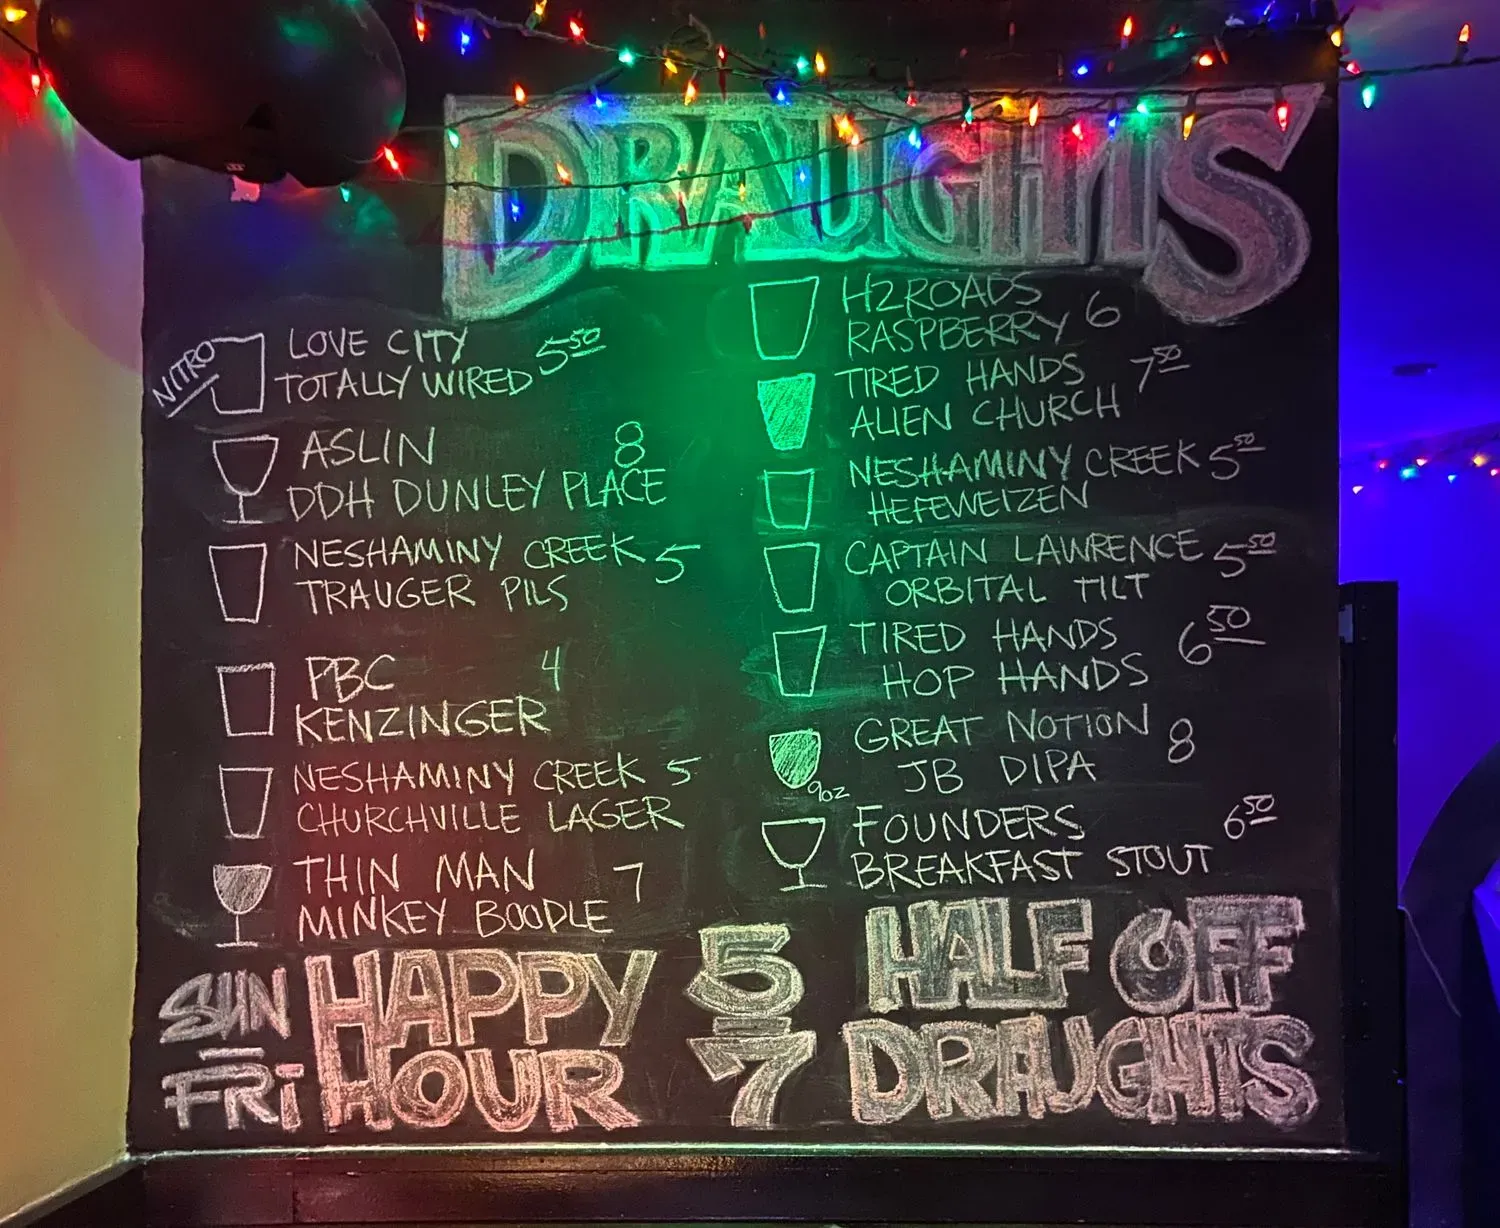 DRAUGHTS
NITRO
LOVE CITY
TOTALLY WIRED 5 50
ASLIN 8
DDH DUNLEY PLACE
NESHAMINY CREEK 5
TRAUGER PILS
PBC 4
KENZINGER
NESHAMINY CREEK 5
CHURCHVILLE LAGER
THIN MAN 7
MINKEY BOODLE
H2ROADS 6
RASPBERRY
TIRED HANDS 7 50
ALIEN CHURCH
NESHAMINY CREEK 5 50
HEFEWEIZEN
CAPTAIN LAWRENCE 5 50
ORBITAL TILT
TIRED HANDS 6 50
HOP HANDS
GREAT NOTION 8
JB DIPA
9oz
FOUNDERS 6 50
BREAKFAST STOUT
SUN - FRi
HAPPY HOUR
5 - 7
HALF OFF
DRAUGHTS